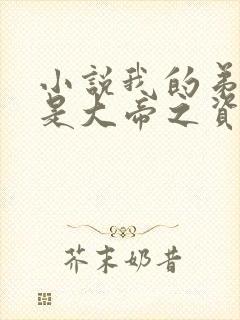 小説我的弟
是大帝之資
芥末奶昔